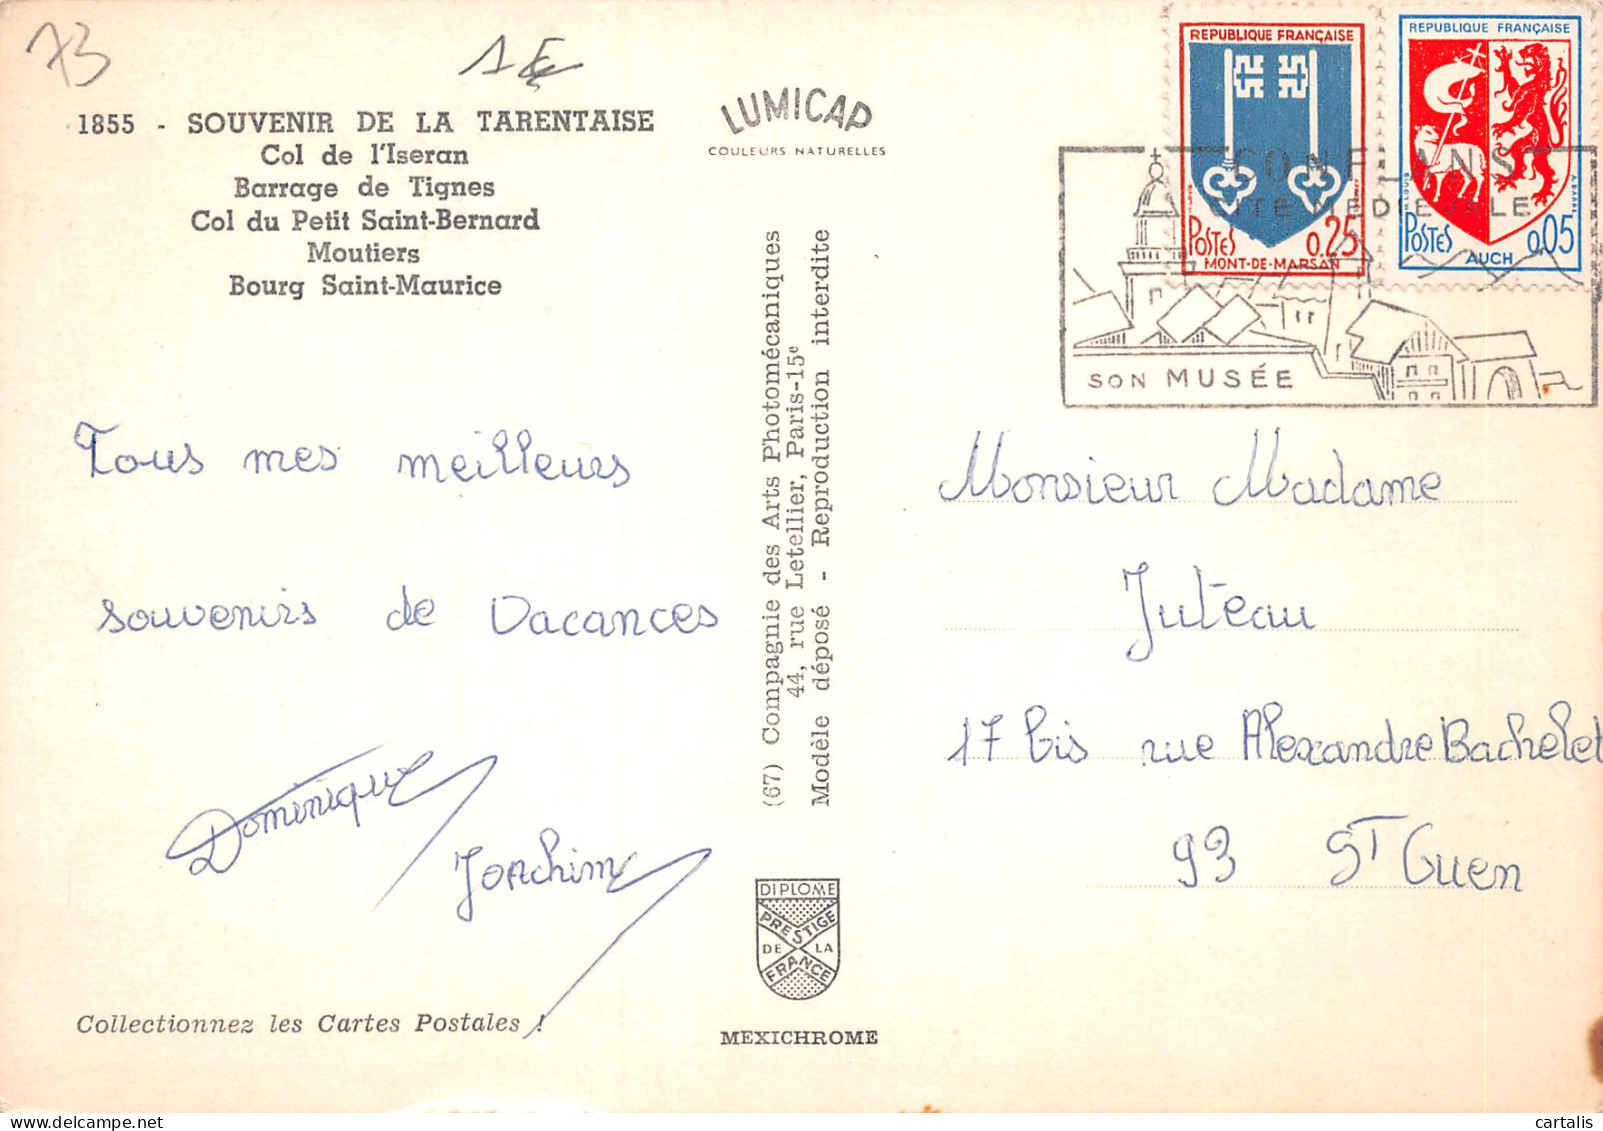 73
1 €
1855 - SOUVENIR DE LA TARENTAISE
Col de l'Iseran
Barrage de Tignes
Col du Petit Saint-Bernard
Moutiers
Bourg Saint-Maurice
LUMICAP
COULEURS NATURELLES
REPUBLIQUE FRANÇAISE
POSTES 0.25
MONT-DE-MARSAN
REPUBLIQUE FRANÇAISE
POSTES 0,05
AUCH
CONFLANS
CITÉ MEDIEVALE
SON MUSÉE
Tous mes meilleurs
souvenirs de Vacances
Dominique
Joachim
Collectionnez les Cartes Postales !
(67) Compagnie des Arts Photomécaniques
44, rue Letellier, Paris-15e
Modèle déposé - Reproduction interdite
DIPLOME
PRESTIGE
DE LA
FRANCE
MEXICHROME
Monsieur Madame
Juteau
17 bis rue Alexandre Bachelet
93 ST Ouen
cartalis sur Delcampe.net